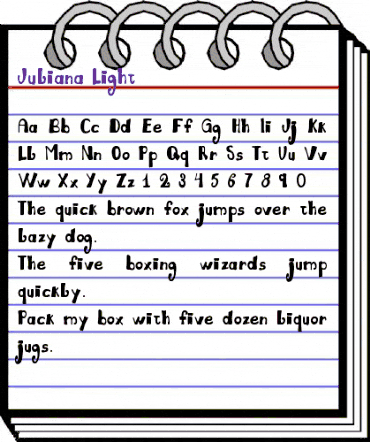 Juliana Light
Aa Bb Cc Dd Ee Ff Gg Hh Ii Jj Kk
Ll Mm Nn Oo Pp Qq Rr Ss Tt Uu Vv
Ww Xx Yy Zz 1 2 3 4 5 6 7 8 9 0
The quick brown fox jumps over the
lazy dog.
The five boxing wizards jump
quickly.
Pack my box with five dozen liquor
jugs.